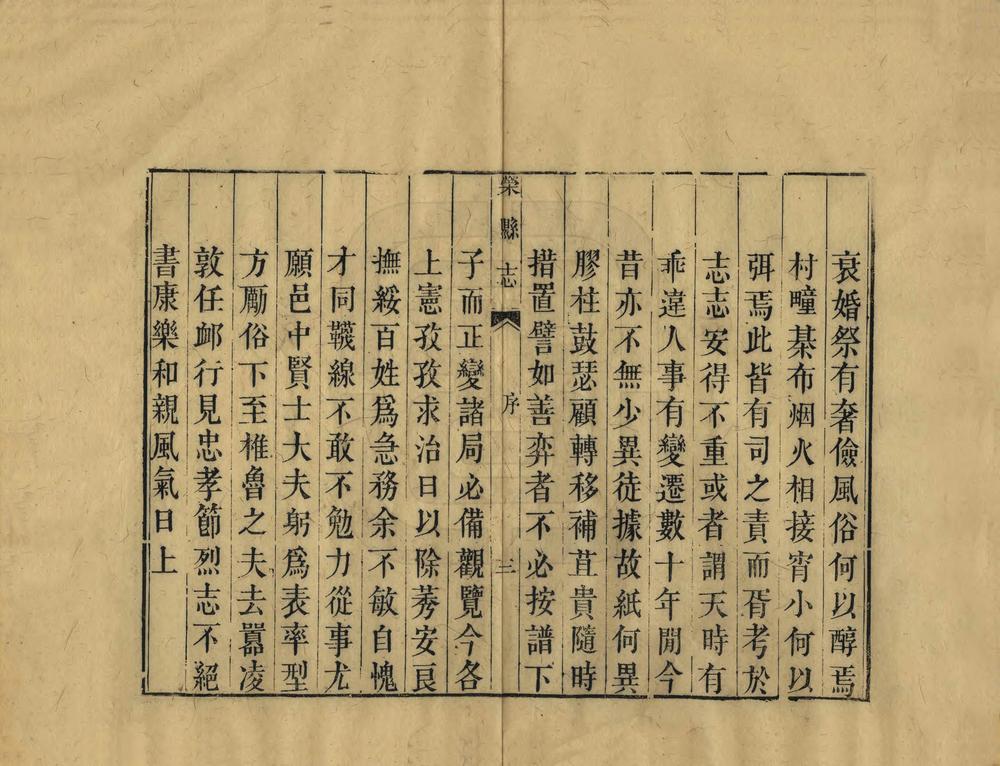 衰婚祭有奢儉風俗何以醇焉
村疃棊布烟火相接宵小何以
弭焉此皆有司之責而胥考於
志志安得不重或者謂天時有
乖違人事有變遷數十年閒今
昔亦不無少異徒據故紙何異
膠柱鼓瑟顧轉移補苴貴隨時
措置譬如善弈者不必按譜下
榮縣志
序
三
子而正變諸局必備觀覽今各
上憲孜孜求治日以除莠安良
撫綏百姓爲急務余不敏自愧
才同韈線不敢不勉力從事尤
願邑中賢士大夫躬爲表率型
方勵俗下至椎魯之夫去嚚凌
敦任卹行見忠孝節烈志不絕
書康樂和親風氣日上